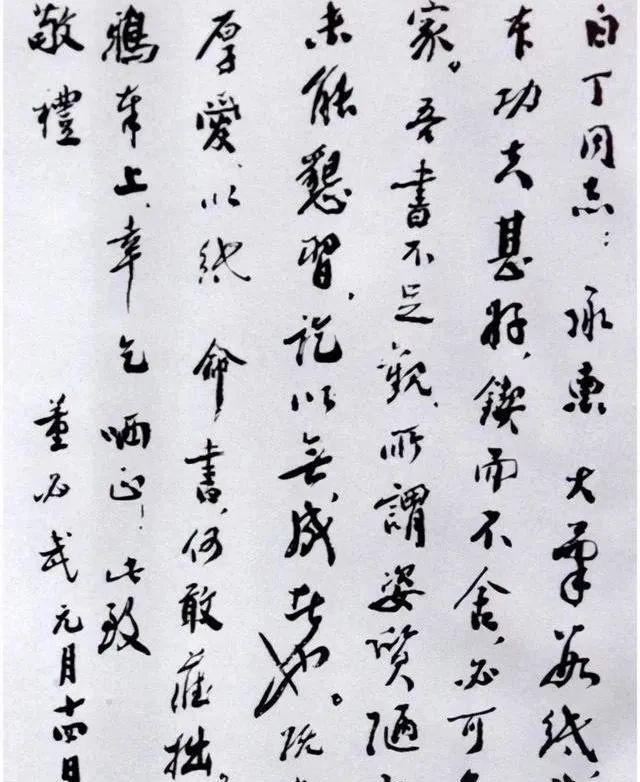 白丁同志：承惠大筆數紙
本功夫甚好，鍥而不舍，必可
家。吾書不足觀，所謂姿質陋
未能懇習，訖以無成者也。既
厚愛，以紙命書，何敢藏拙。
鴉奉上，幸乞哂正！此致
敬禮
董必武元月十四日